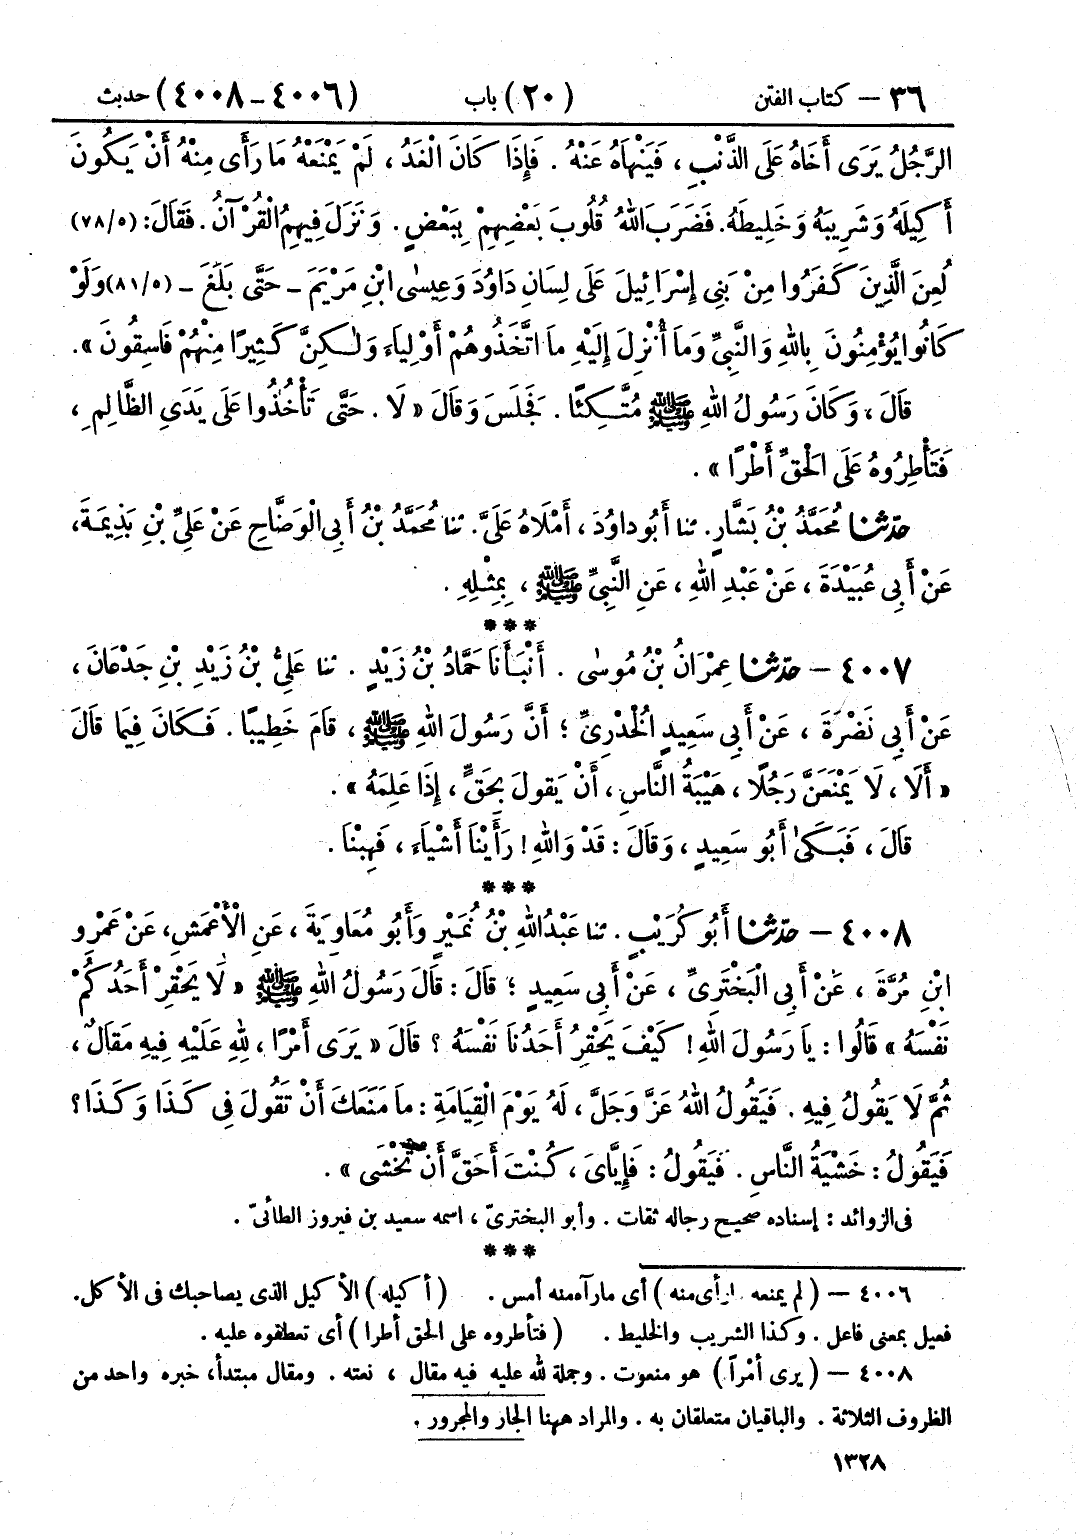 ٣٦ – كتاب الفتن (٢٠) باب (٤٠٠٦ – ٤٠٠٨) حديث
الرَّجُلُ يَرَى أَخَاهُ عَلَى الذَّنْبِ ، فَيَنْهَاهُ عَنْهُ . فَإِذَا كَانَ الْغَدُ ، لَمْ يَمْنَعْهُ مَا رَأَى مِنْهُ أَنْ يَكُونَ
أَكِيلَهُ وَشَرِيبَهُ وَخَلِيطَهُ. فَضَرَبَ اللهُ قُلُوبَ بَعْضِهِمْ بِبَعْضٍ . وَنَزَلَ فِيهِمُ الْقُرْآنُ . فَقَالَ : (٧٨/٥)
لُعِنَ الَّذِينَ كَفَرُوا مِنْ بَنِي إِسْرَائِيلَ عَلَى لِسَانِ دَاوُدَ وَعِيسٰى ابْنِ مَرْيَمَ – حَتَّى بَلَغَ – (٨١/٥) وَلَوْ
كَانُوا يُؤْمِنُونَ بِاللهِ وَالنَّبِيِّ وَمَا أُنْزِلَ إِلَيْهِ مَا اتَّخَذُوهُمْ أَوْلِيَاءَ وَلٰكِنَّ كَثِيرًا مِنْهُمْ فَاسِقُونَ » .
قَالَ ، وَكَانَ رَسُولُ اللهِ ﷺ مُتَّكِئًا . فَجَلَسَ وَقَالَ « لَا . حَتَّى تَأْخُذُوا عَلَى يَدَيِ الظَّالِمِ ،
فَتَأْطِرُوهُ عَلَى الْحَقِّ أَطْرًا » .
حدّثنا مُحَمَّدُ بْنُ بَشَّارٍ . ثنا أَبُو دَاوُدَ ، أَمْلَاهُ عَلَيَّ . ثنا مُحَمَّدُ بْنُ أَبِي الْوَضَّاحِ عَنْ عَلِيِّ بْنِ بَذِيمَةَ ،
عَنْ أَبِي عُبَيْدَةَ ، عَنْ عَبْدِ اللهِ ، عَنِ النَّبِيِّ ﷺ ، بِمِثْلِهِ .
***
٤٠٠٧ – حدّثنا عِمْرَانُ بْنُ مُوسٰى . أَنْبَأَنَا حَمَّادُ بْنُ زَيْدٍ . ثنا عَلِيُّ بْنُ زَيْدِ بْنِ جَدْعَانَ ،
عَنْ أَبِي نَضْرَةَ ، عَنْ أَبِي سَعِيدٍ الْخُدْرِيِّ ؛ أَنَّ رَسُولَ اللهِ ﷺ ، قَامَ خَطِيبًا . فَكَانَ فِيمَا قَالَ
« أَلَا ، لَا يَمْنَعَنَّ رَجُلًا ، هَيْبَةُ النَّاسِ ، أَنْ يَقُولَ بِحَقٍّ ، إِذَا عَلِمَهُ » .
قَالَ ، فَبَكٰى أَبُو سَعِيدٍ ، وَقَالَ : قَدْ وَاللهِ ! رَأَيْنَا أَشْيَاءَ ، فَهِبْنَا .
***
٤٠٠٨ – حدّثنا أَبُو كُرَيْبٍ . ثنا عَبْدُ اللهِ بْنُ نُمَيْرٍ وَأَبُو مُعَاوِيَةَ ، عَنِ الْأَعْمَشِ ، عَنْ عَمْرِو
ابْنِ مُرَّةَ ، عَنْ أَبِي الْبَخْتَرِيِّ ، عَنْ أَبِي سَعِيدٍ ؛ قَالَ : قَالَ رَسُولُ اللهِ ﷺ « لَا يَحْقِرْ أَحَدُكُمْ
نَفْسَهُ » قَالُوا : يَا رَسُولَ اللهِ ! كَيْفَ يَحْقِرُ أَحَدُنَا نَفْسَهُ ؟ قَالَ « يَرَى أَمْرًا ، لِلهِ عَلَيْهِ فِيهِ مَقَالٌ ،
ثُمَّ لَا يَقُولُ فِيهِ . فَيَقُولُ اللهُ عَزَّ وَجَلَّ ، لَهُ يَوْمَ الْقِيَامَةِ : مَا مَنَعَكَ أَنْ تَقُولَ فِي كَذَا وَكَذَا ؟
فَيَقُولُ : خَشْيَةُ النَّاسِ . فَيَقُولُ : فَإِيَّايَ ، كُنْتَ أَحَقَّ أَنْ تَخْشَى » .
فى الزوائد : إسناده صحيح رجاله ثقات . وأبو البخترىّ ، اسمه سعيد بن فيروز الطائىّ .
***
٤٠٠٦ – ( لم يمنعه مارأى منه ) أى مارآه منه أمس . ( أكيله ) الأكيل الذى يصاحبك فى الأكل.
فعيل بمعنى فاعل . وكذا الشريب والخليط . ( فتأطروه على الحق أطرا ) أى تعطفوه عليه .
٤٠٠٨ – ( يرى أمْراً ) هو منعوت . وجملة لله عليه فيه مقال ، نعته . ومقال مبتدأ ، خبره واحد من
الظروف الثلاثة . والباقيان متعلقان به . والمراد ههنا الجار والمجرور .
١٣٢٨